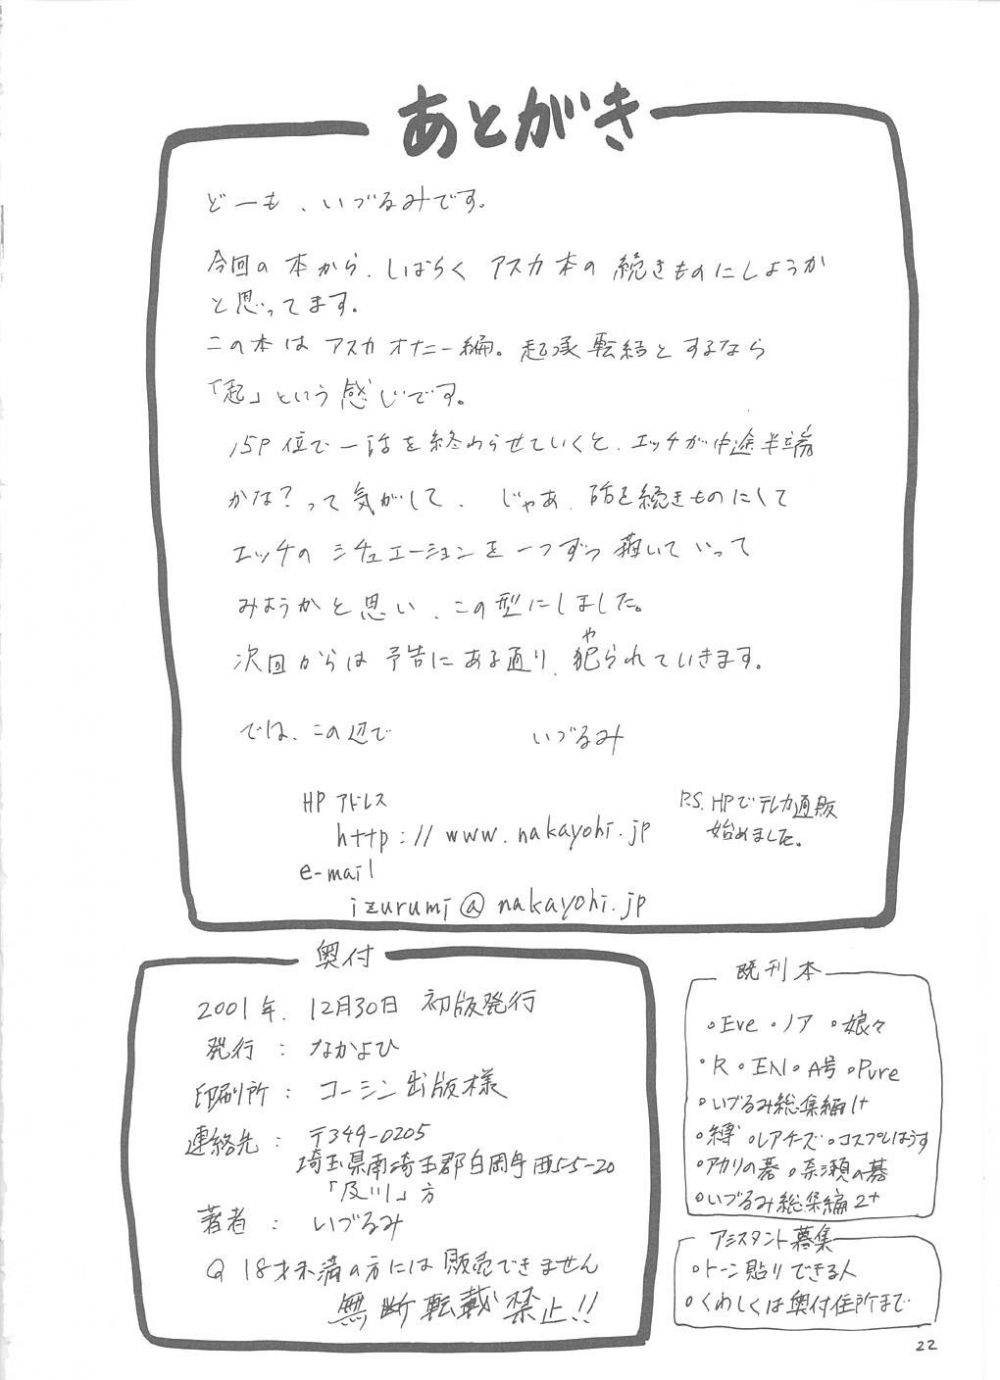 あとがき
どーも、いづるみです。
今回の本から、しばらく アスカ本の 続きものにしようか
と思ってます。
この本は アスカオナニー編。起承転結とするなら
「起」という感じです。
15P位で一話を終わらせていくと、エッチが中途半端
かな?って気がして、じゃあ、話を続きものにして
エッチの シチュエーションを 一つずつ 描いていって
みようかと思い、この型にしました。
次回からは 予告にある通り、犯られていきます。
や
では、この辺で いづるみ
HP アドレス
http://www.nakayohi.jp
e-mail
izurumi@nakayohi.jp
P.S. HPでテレカ通販
始めました。
奥付
2001年、12月30日 初版発行
発行 : なかよひ
印刷所 : コーシン出版様
連絡先 : 〒349-0205
埼玉県南埼玉郡白岡町西5-5-20
「及川」方
著者 : いづるみ
18才未満の方には 販売できません
無断転載禁止!!
既刊本
○Eve ○ノア ○娘々
○R ○EN ○A号 ○Pure
○いづるみ総集編1+
○縛 ○レアチーズ ○コスプレはうす
○アカリの碁 ○奈瀬の碁
○いづるみ総集編2+
アシスタント募集
○トーン貼りできる人
○くわしくは奥付住所まで
22